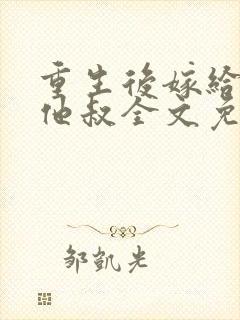 重生後嫁給
他叔全文免
邹凱光